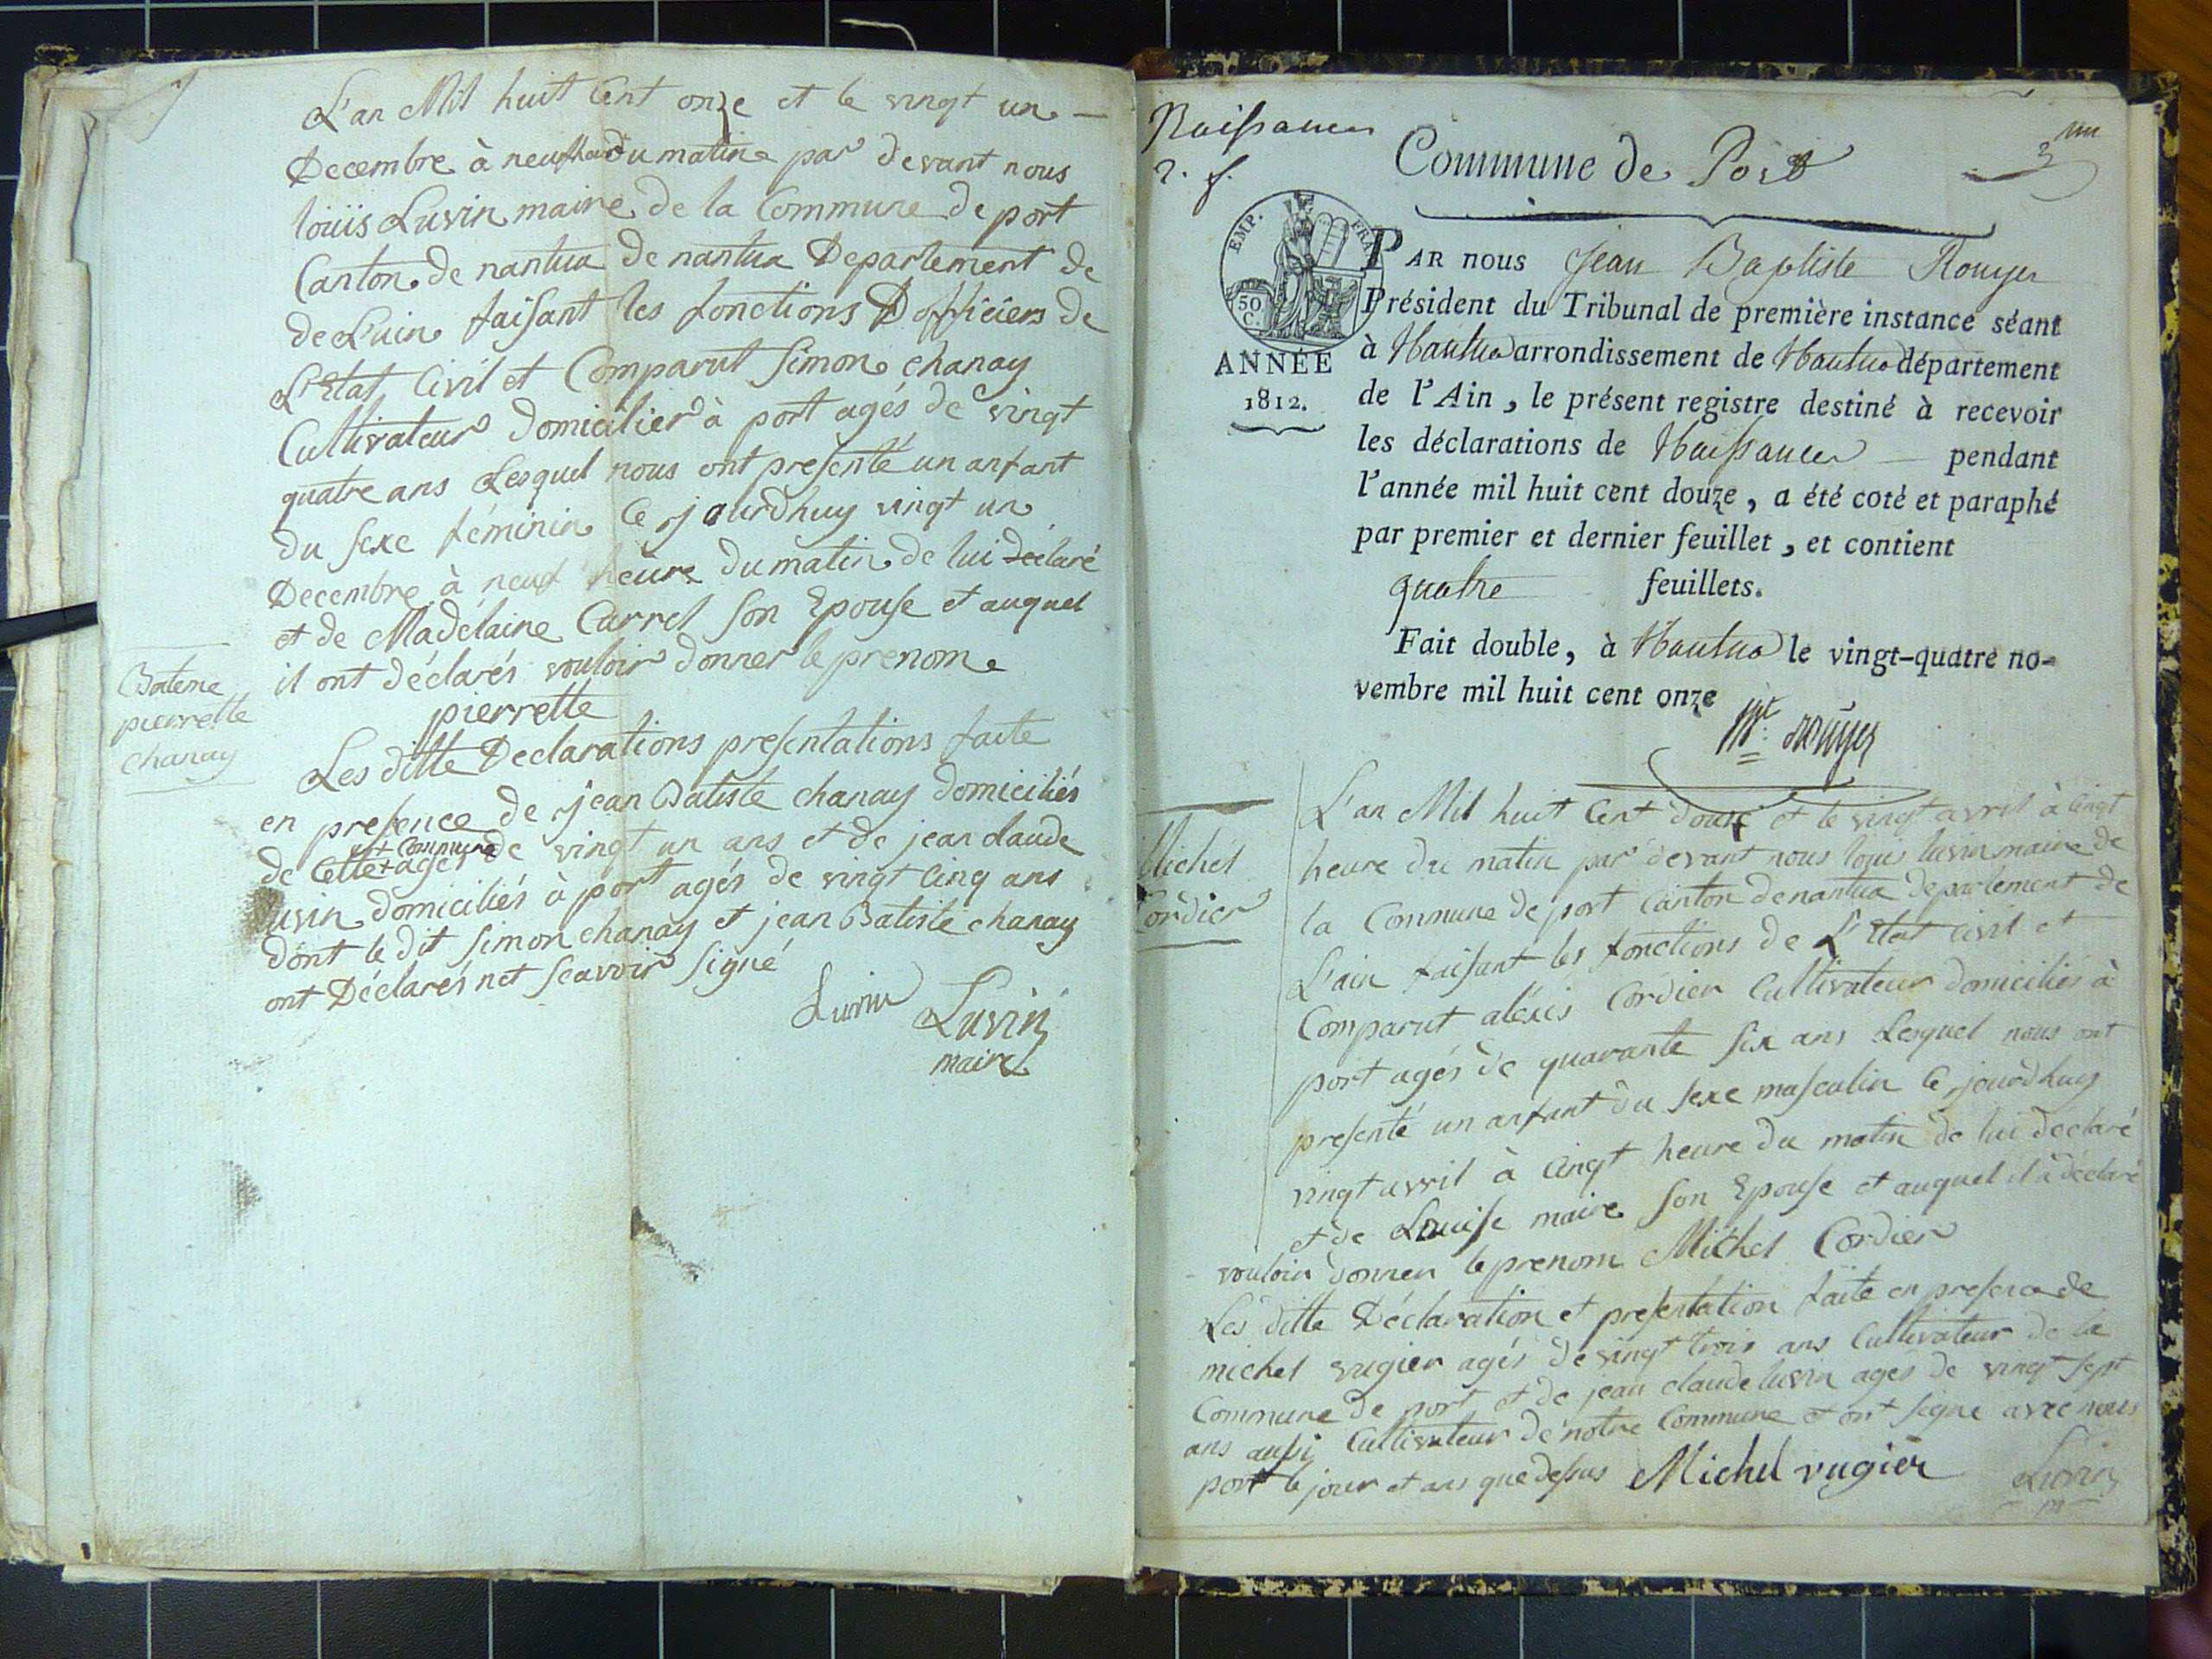 L'an Mil huit Cent onze et le vingt un
Decembre à neuf heur du matin par devant nous
loüis Luvin maire de la Commune de port
Canton de nantua de nantua Departement de
de Luin faisant les fonctions D officiers de
L'Etat Civil et Comparut Simon chanay
Cultivateur Domicilier à port agés de vingt
quatre ans Lesquel nous ont presenté un anfant
du sexe féminin Ce jourdhuy vingt un
Decembre à neuf heure du matin de lui declaré
et de Madelaine Carrel son Epouse et auquel
il ont déclarés vouloir donner le prenom
pierrette
Bateme
pierrette
chanay
Les ditte Declarations presentations faite
en presence de jean Batiste chanay domiciliés
Commune
de Cette agés de vingt un ans et de jean claude
luvin domiciliés à port agés de vingt Cinq ans
dont le dit Simon chanay et jean Batiste chanay
ont Déclarés net scavoir signé
Luvin Luvin
maire
Naissances
2. f.
Commune de Port
EMP. FRA
50
C.
ANNÉE
1812.
PAR nous Jean Baptiste Rouyer
Président du Tribunal de première instance séant
à Nantua arrondissement de Nantua département
de l'Ain, le présent registre destiné à recevoir
les déclarations de Naissances pendant
l'année mil huit cent douze, a été coté et paraphé
par premier et dernier feuillet, et contient
quatre feuillets.
Fait double, à Nantua le vingt-quatre no-
vembre mil huit cent onze
Rouyer
Michel
Cordier
L'an Mil huit Cent douse et le vingt avril à Cingt
heure du matin par devant nous louis luvin maire de
la Commune de port Canton de nantua departement de
L'ain faisant les fonctions de L'Etat Civil et
Comparut aléxis Cordier Cultivateur domiciliés à
port agés de quarante six ans Lesquel nous ont
presenté un anfant du sexe masculin Ce jourdhuy
vingt avril à Cingt heure du matin de lui declaré
et de Louise maire son Epouse et auquel il à déclaré
vouloir donner le prenom Michel Cordier
Les ditte Déclaration et presentation faite en presence de
michel vugier agés de vingt trois ans Cultivateur de la
Commune de port et de jean claude luvin agés de vingt sept
ans aussi Cultivateur de notre Commune et ont signe avec nous
port le jour et ans que dessus Michel vugier Luvin
m